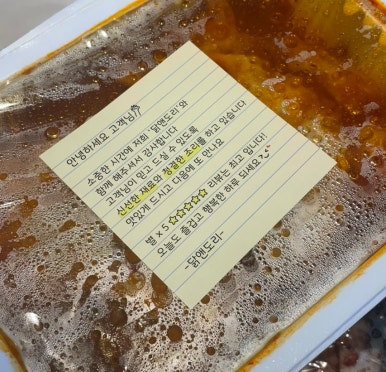 안녕하세요 고객님
소중한 시간에 저희 '닭앤도리'와
함께 해주셔서 감사합니다
고객님이 믿고 드실 수 있도록
신선한 재료와 청결한 조리를 하고 있습니다
맛있게 드시고 다음에 또 만나요
별 x 5 ☆☆☆☆☆ 리뷰는 최고 입니다!
오늘도 즐겁고 행복한 하루 되세요?
-닭앤도리-